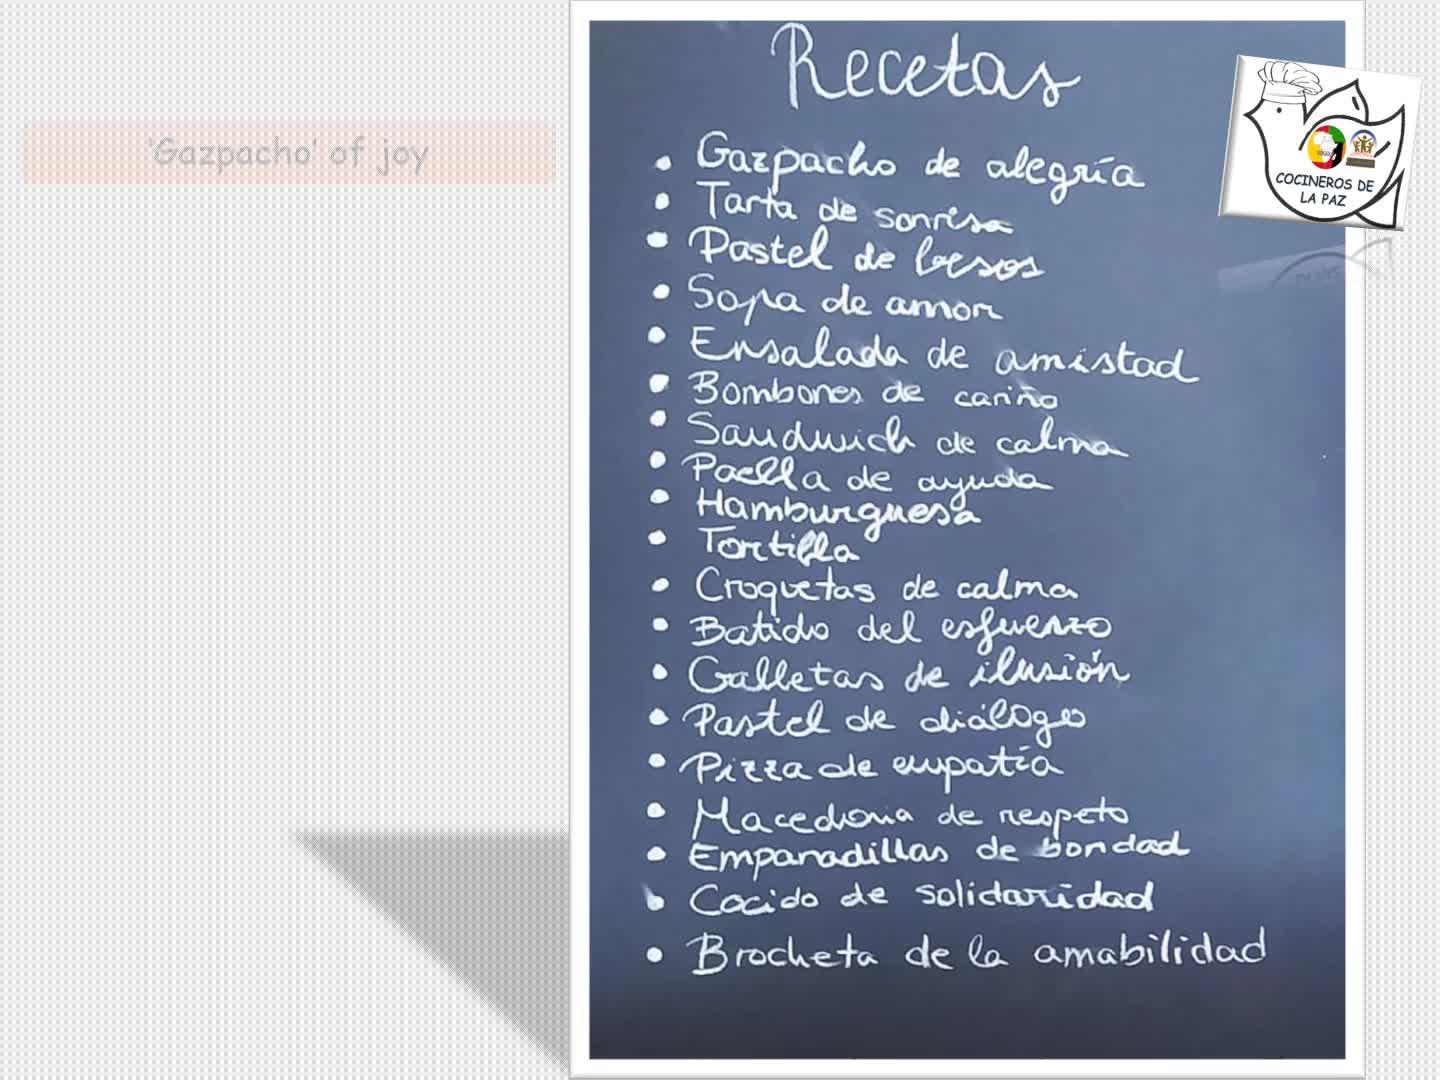 'Gazpacho' of joy
Recetas
• Gazpacho de alegría
• Tarta de sonrisa
• Pastel de besos
• Sopa de amor
• Ensalada de amistad
• Bombones de cariño
• Sandwich de calma
• Paella de ayuda
• Hamburguesa
• Tortilla
• Croquetas de calma
• Batido del esfuerzo
• Galletas de ilusión
• Pastel de diálogo
• Pizza de empatía
• Macedonia de respeto
• Empanadillas de bondad
• Cocido de solidaridad
• Brocheta de la amabilidad
COCINEROS DE
LA PAZ